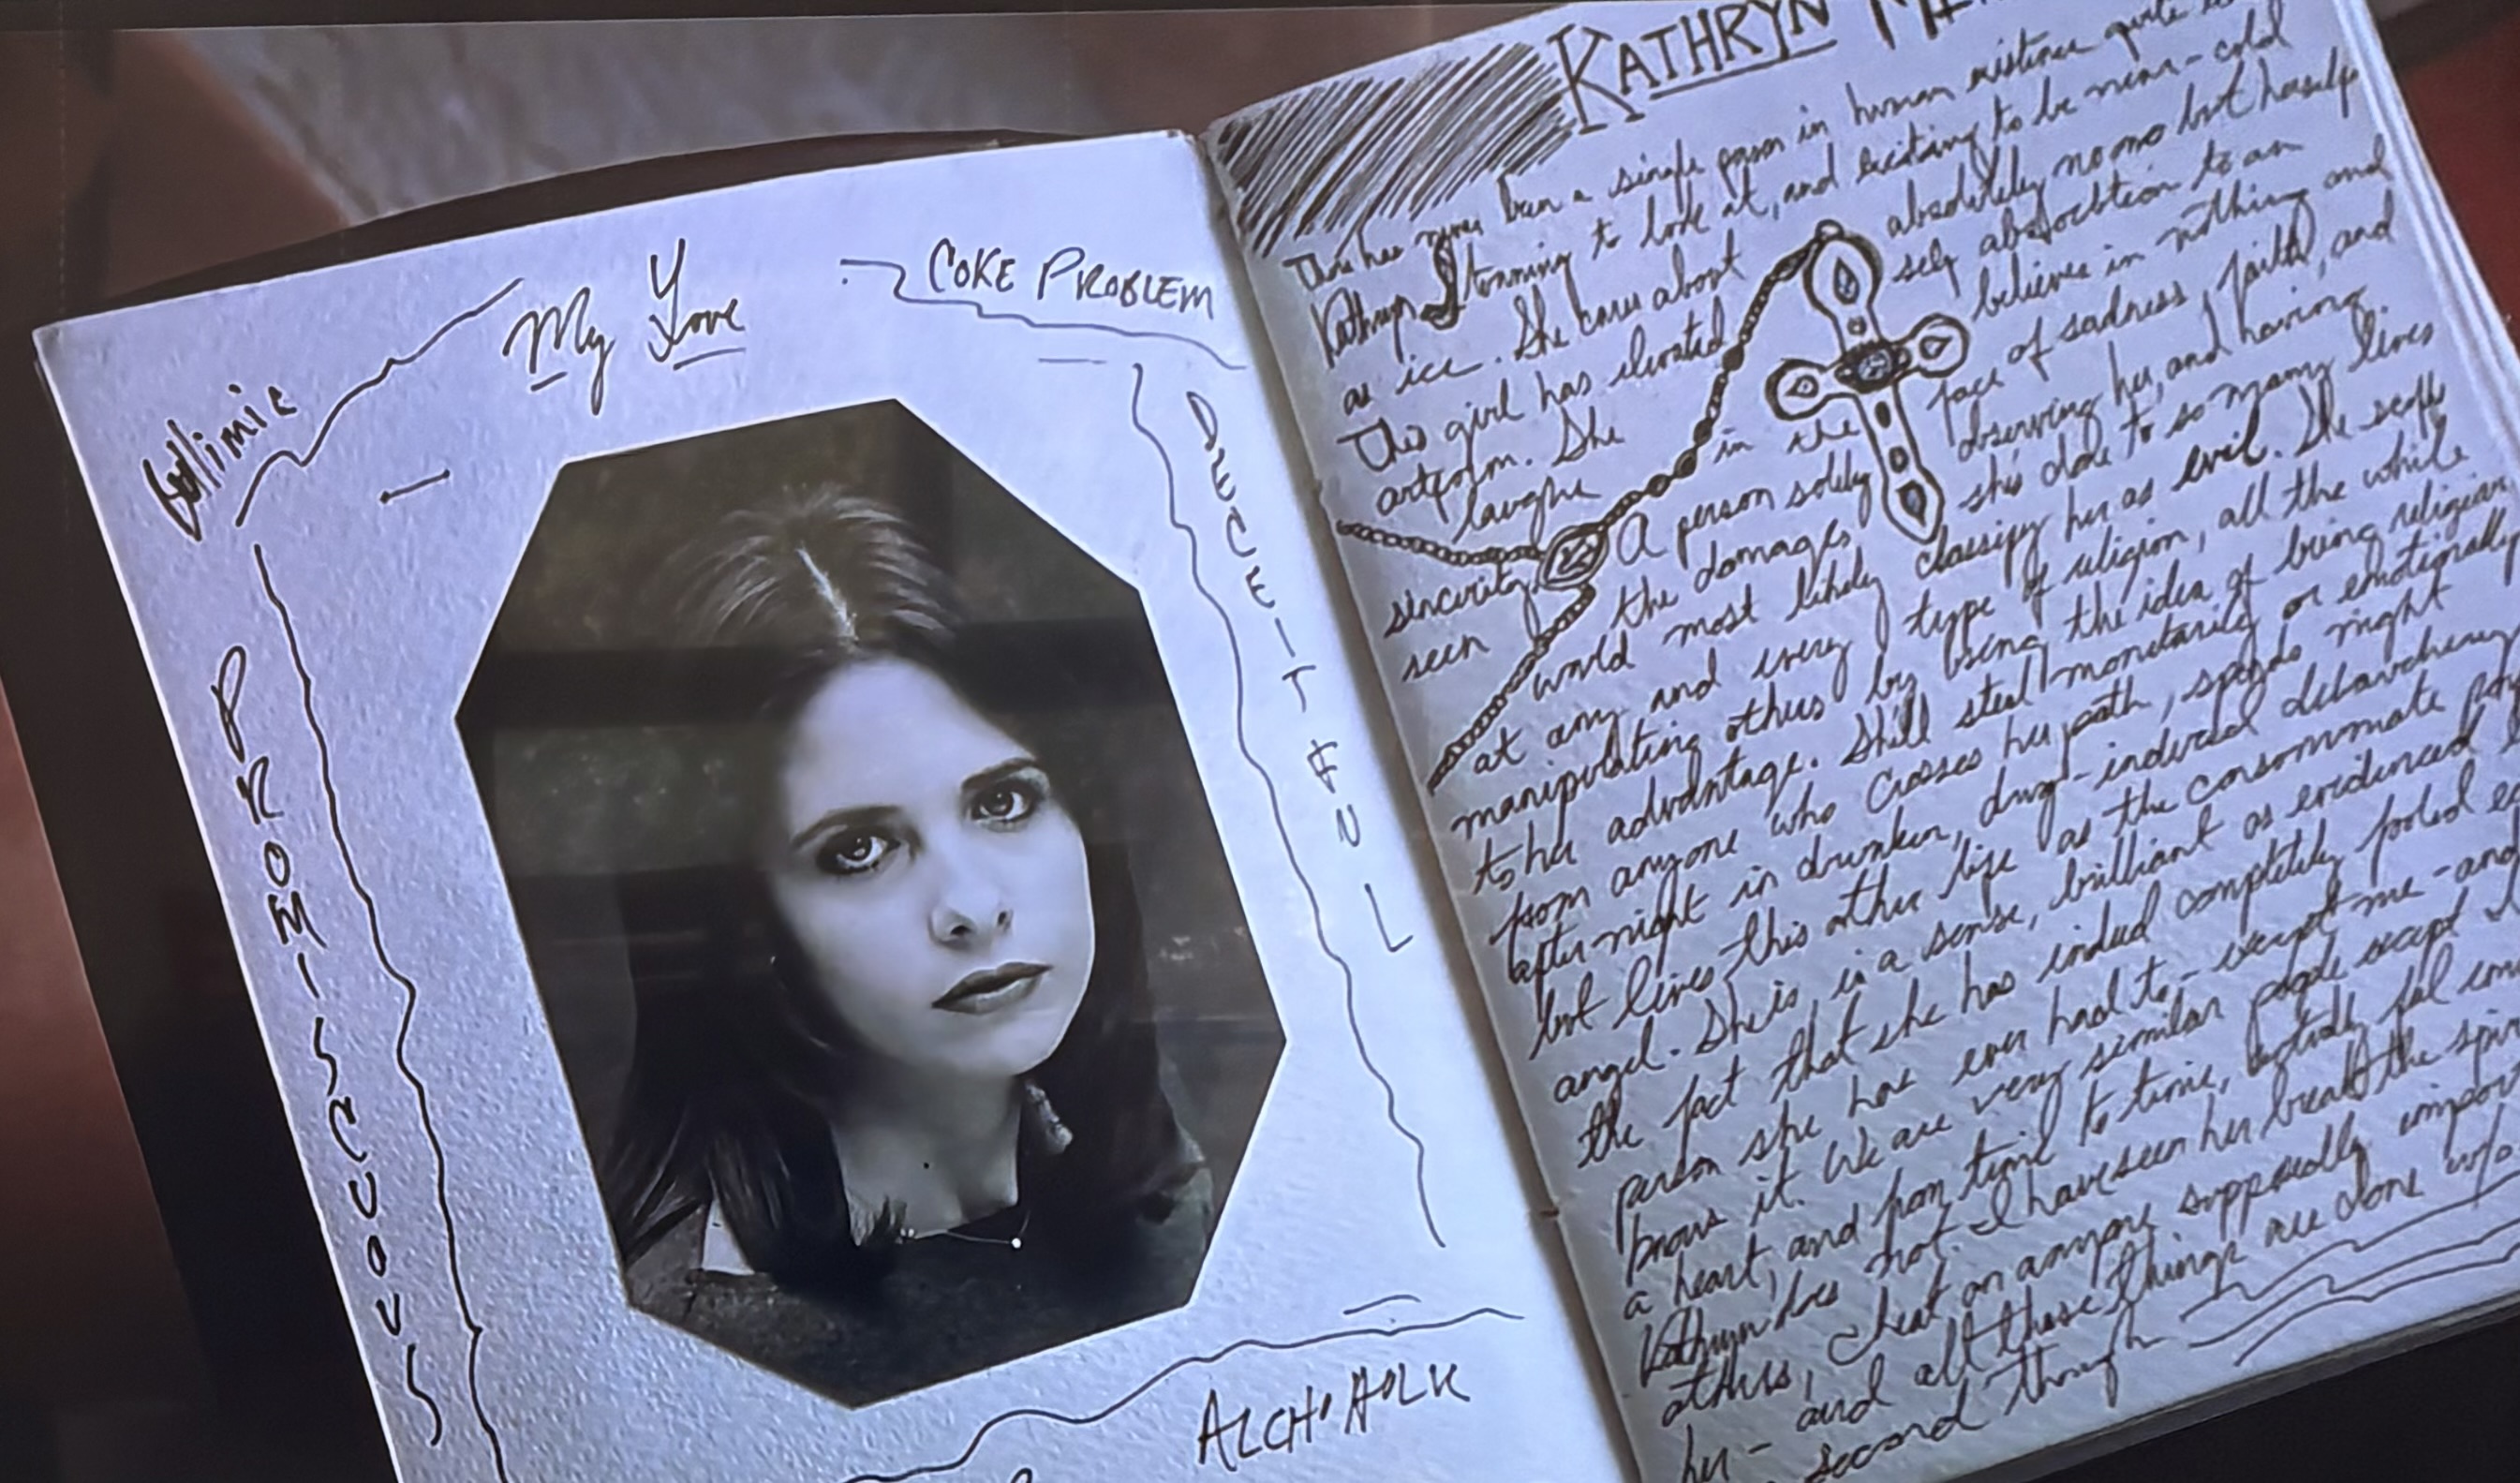 My Love
COKE PROBLEM
Bulimic
PROMISCUOUS
DECEITFUL
ALCHOHOLIC
KATHRYN
There has never been a single person in human existence quite
Kathryn. Stunning to look at, and exciting to be near - cold
as ice. She cares about absolutely no one but herself
This girl has elevated self absorbtion to an
artform. She believes in nothing and
laughs in the face of sadness, faith, and
sincerity. A person solely observing her, and having
seen the damages shes done to so many lives
would most likely classify her as evil. She scoffs
at any and every type of religion, all the while
manipulating others by using the idea of being religious
to her advantage. She'll steal monetarily or emotionally
from anyone who crosses her path, spends night
after night in drunken, drug-induced debauchery
but lives this other life as the consommate
angel. She is, in a sense, brilliant as evidenced
the fact that she has indeed completely fooled
person she has ever had to - except me - and
knows it. We are very similar people except I
a heart, and from time to time, actually feel
Kathryn does not. I have seen her break the
others, cheat on anyone supposedly
her - and all those things are done w/o
second though